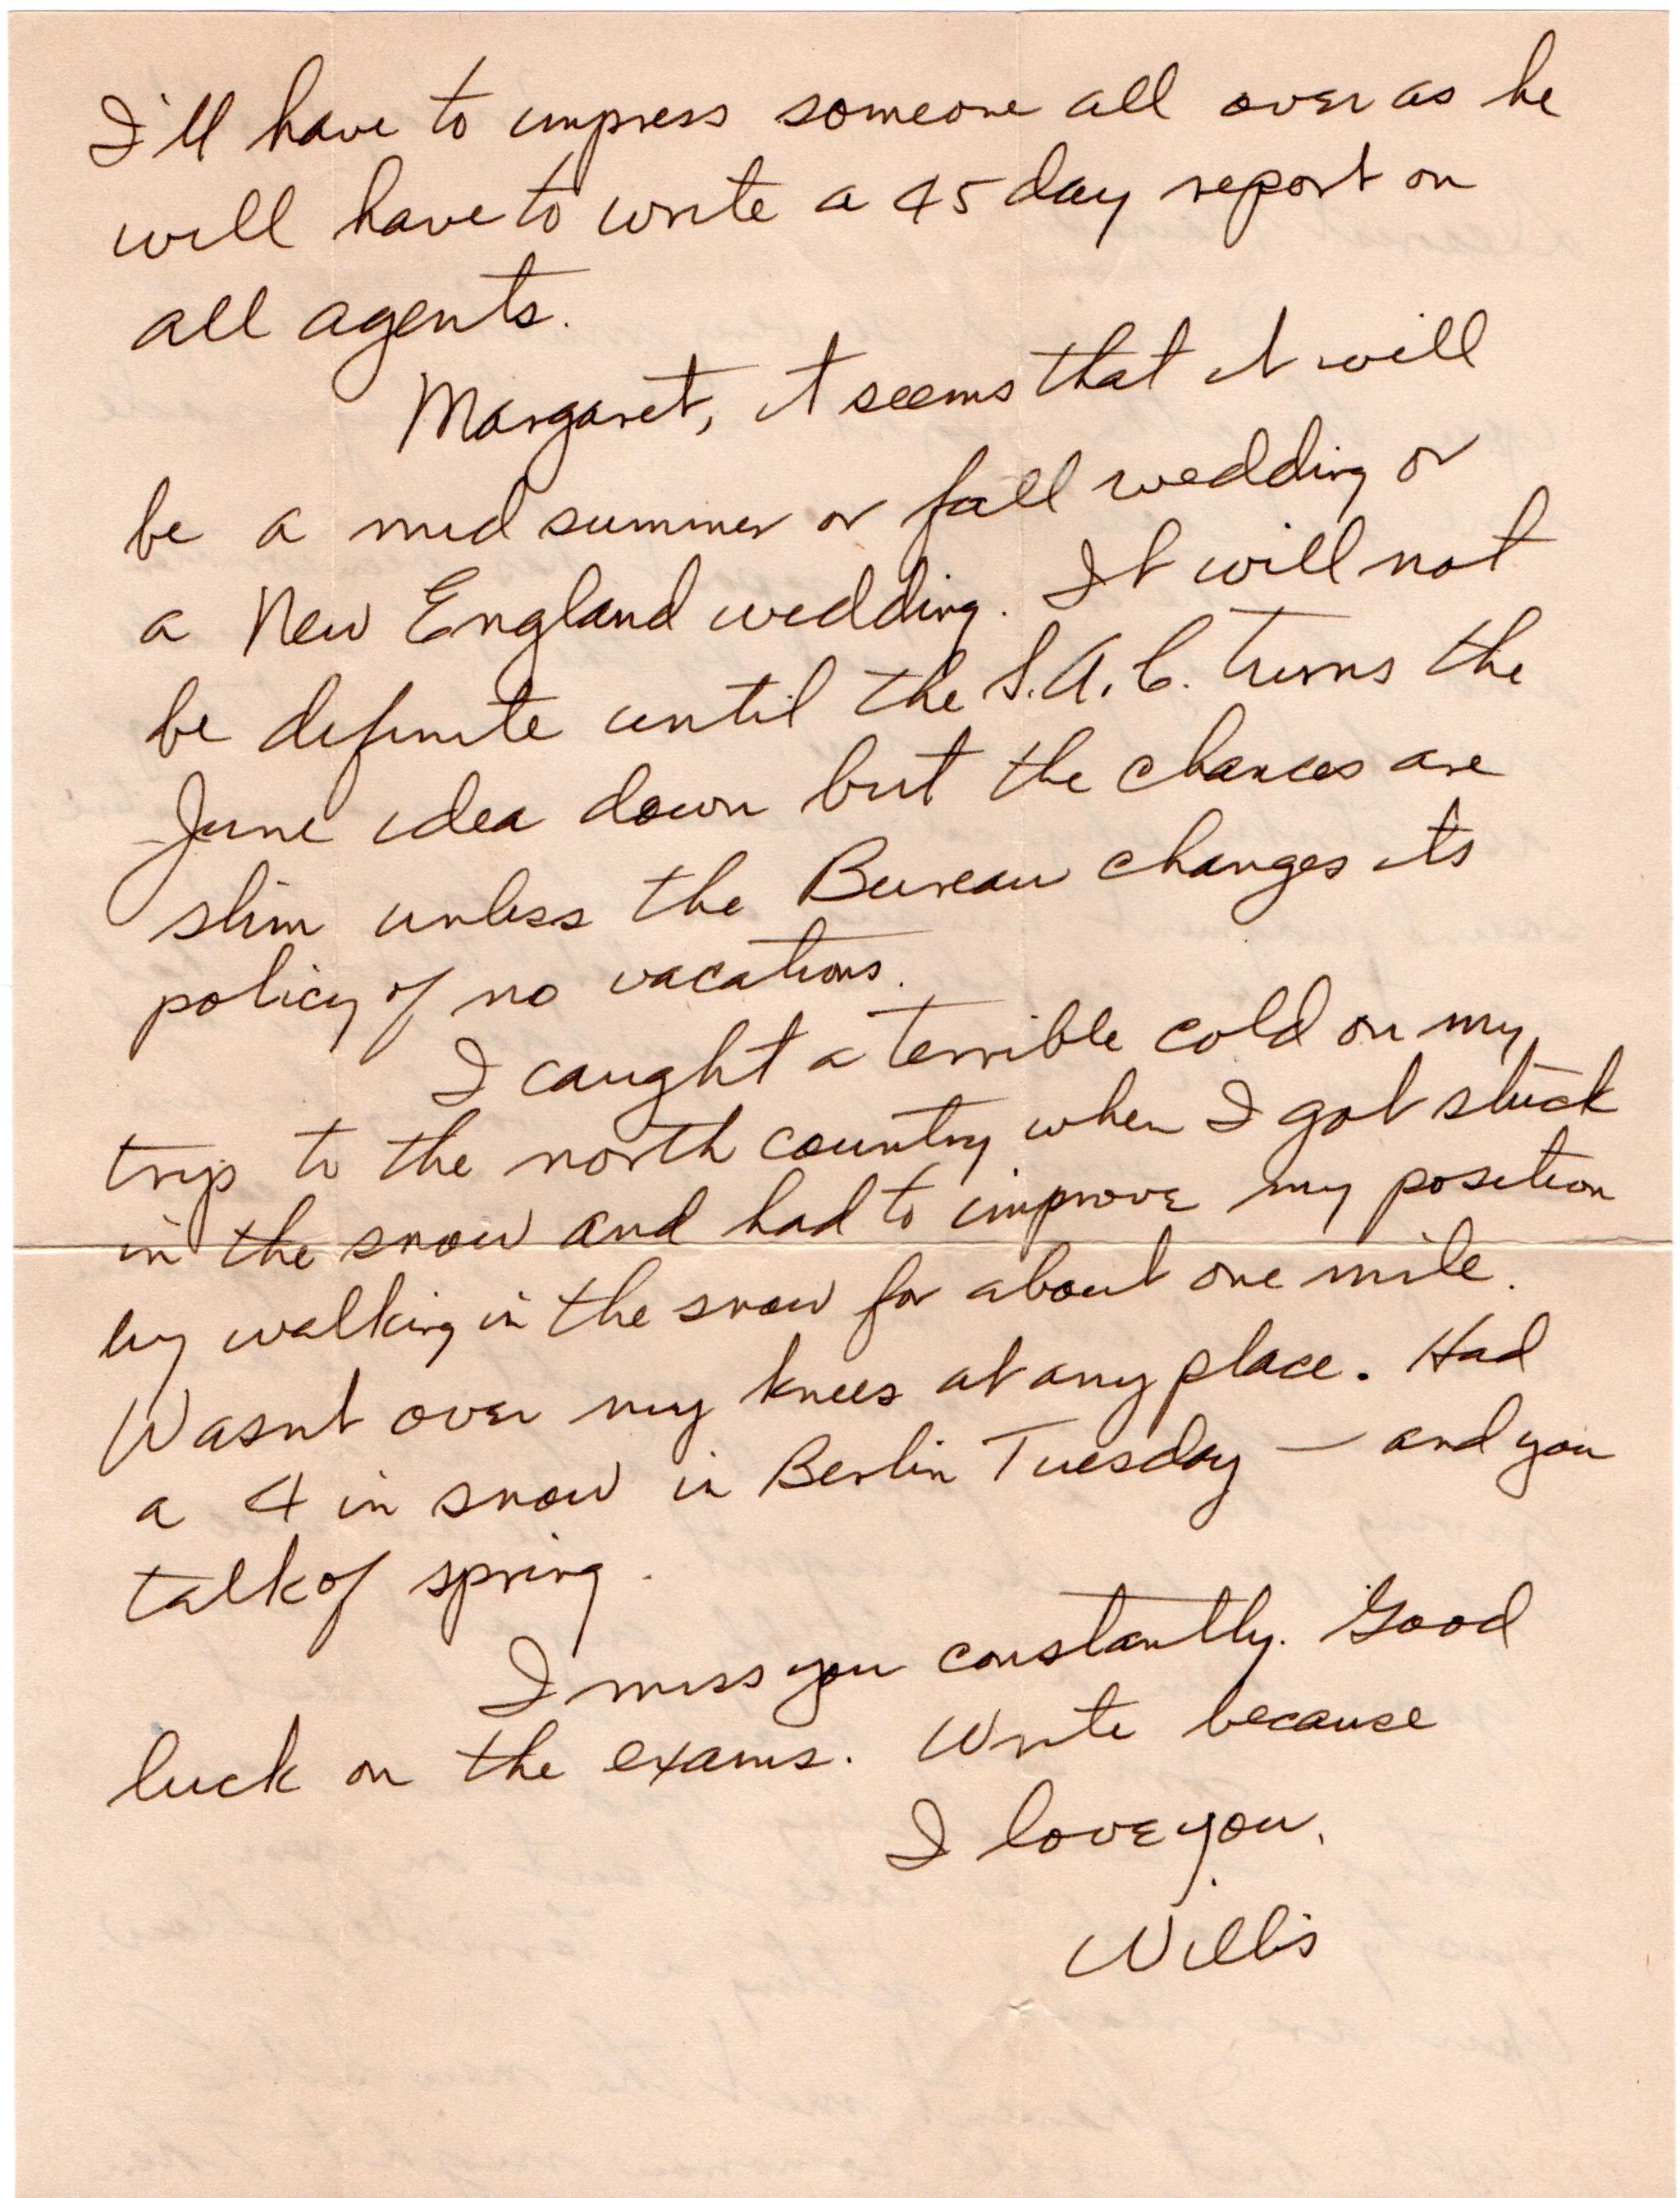 I'll have to impress someone all over as he
will have to write a 45 day report on
all agents.
Margaret, it seems that it will
be a mid summer or fall wedding or
a New England wedding. It will not
be definite until the S.A.C. turns the
June idea down but the chances are
slim unless the Bureau changes its
policy of no vacations.
I caught a terrible cold on my
trip to the north country when I got stuck
in the snow and had to improve my position
by walking in the snow for about one mile.
Wasnt over my knees at any place. Had
a 4 in snow in Berlin Tuesday — and you
talk of spring.
I miss you constantly. Good
luck on the exams. Write because
I love you.
Willis